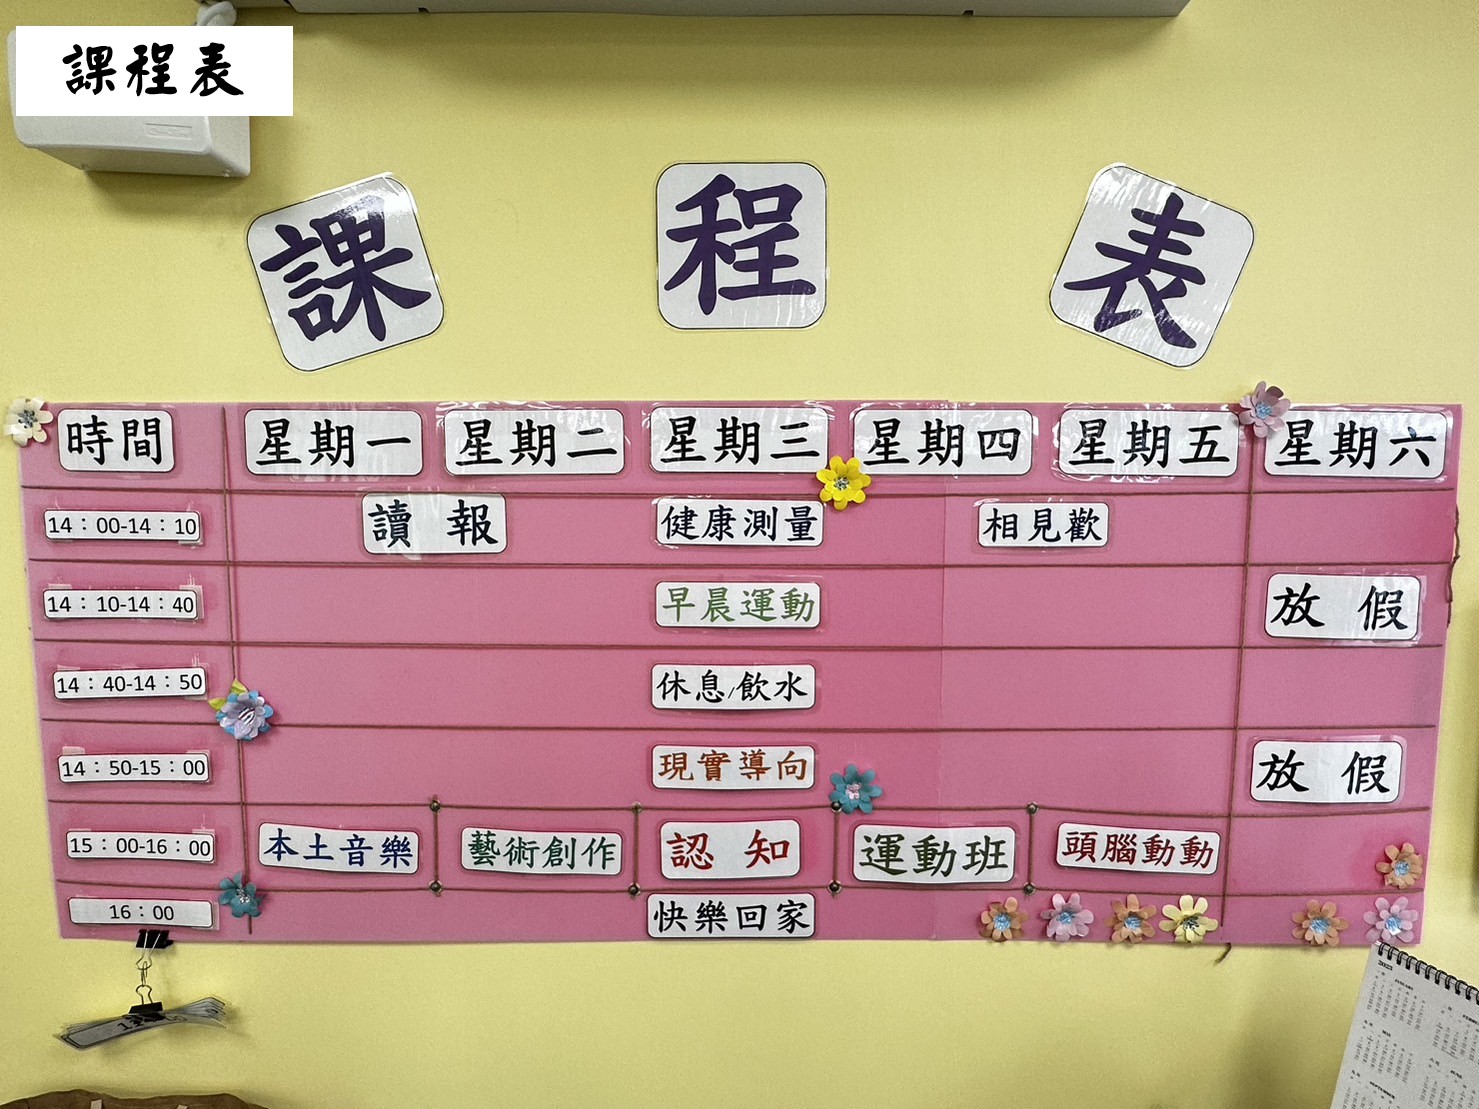 課程表
課 程 表
時間 星期一 星期二 星期三 星期四 星期五 星期六
14：00-14：10 讀 報 健康測量 相見歡
14：10-14：40 早晨運動 放 假
14：40-14：50 休息/飲水
14：50-15：00 現實導向 放 假
15：00-16：00 本土音樂 藝術創作 認 知 運動班 頭腦動動
16：00 快樂回家